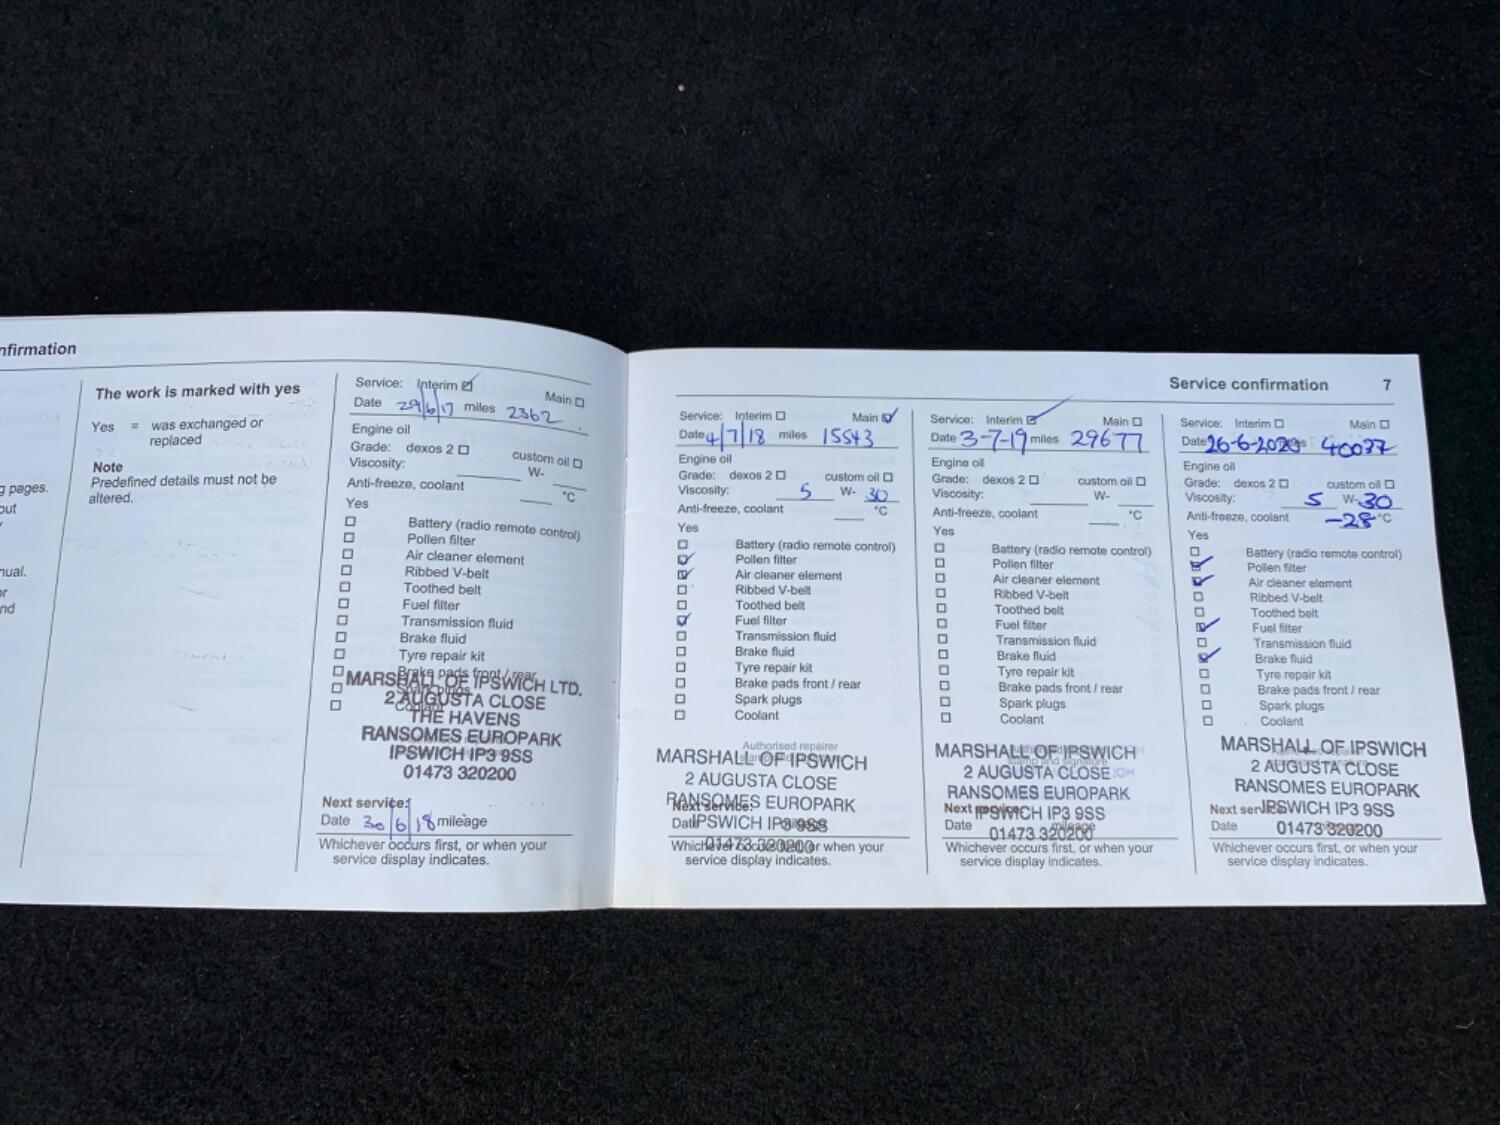 nfirmation
g pages.
out
nual.
or
nd
The work is marked with yes
Yes = was exchanged or
replaced
Note
Predefined details must not be
altered.
Service: Interim ☑ Main ☐
Date 29/6/17 miles 2362
Engine oil
Grade: dexos 2 ☐ custom oil ☐
Viscosity: W-
Anti-freeze, coolant °C
Yes
☐ Battery (radio remote control)
☐ Pollen filter
☐ Air cleaner element
☐ Ribbed V-belt
☐ Toothed belt
☐ Fuel filter
☐ Transmission fluid
☐ Brake fluid
☐ Tyre repair kit
☐ Brake pads front / rear
☐ Spark plugs
☐ Coolant
MARSHALL OF IPSWICH LTD.
2 AUGUSTA CLOSE
THE HAVENS
RANSOMES EUROPARK
IPSWICH IP3 9SS
01473 320200
Next service:
Date 30/6/18 mileage
Whichever occurs first, or when your
service display indicates.
Service confirmation 7
Service: Interim ☐ Main ☑
Date 4/7/18 miles 15543
Engine oil
Grade: dexos 2 ☐ custom oil ☐
Viscosity: 5 W- 30
Anti-freeze, coolant °C
Yes
☐ Battery (radio remote control)
☑ Pollen filter
☑ Air cleaner element
☐ Ribbed V-belt
☐ Toothed belt
☑ Fuel filter
☐ Transmission fluid
☐ Brake fluid
☐ Tyre repair kit
☐ Brake pads front / rear
☐ Spark plugs
☐ Coolant
Authorised repairer
MARSHALL OF IPSWICH
2 AUGUSTA CLOSE
RANSOMES EUROPARK
Next service:
IPSWICH IP3 9SS
Date mileage
01473 320200
Whichever occurs first, or when your
service display indicates.
Service: Interim ☑ Main ☐
Date 3-7-19 miles 29677
Engine oil
Grade: dexos 2 ☐ custom oil ☐
Viscosity: W-
Anti-freeze, coolant °C
Yes
☐ Battery (radio remote control)
☐ Pollen filter
☐ Air cleaner element
☐ Ribbed V-belt
☐ Toothed belt
☐ Fuel filter
☐ Transmission fluid
☐ Brake fluid
☐ Tyre repair kit
☐ Brake pads front / rear
☐ Spark plugs
☐ Coolant
Authorised repairer
stamp and signature
MARSHALL OF IPSWICH
2 AUGUSTA CLOSE
RANSOMES EUROPARK
Next service:
IPSWICH IP3 9SS
Date mileage
01473 320200
Whichever occurs first, or when your
service display indicates.
Service: Interim ☐ Main ☐
Date 26-6-2020 miles 40037
Engine oil
Grade: dexos 2 ☐ custom oil ☐
Viscosity: 5 W- 30
Anti-freeze, coolant -28 °C
Yes
☐ Battery (radio remote control)
☑ Pollen filter
☑ Air cleaner element
☐ Ribbed V-belt
☐ Toothed belt
☑ Fuel filter
☐ Transmission fluid
☑ Brake fluid
☐ Tyre repair kit
☐ Brake pads front / rear
☐ Spark plugs
☐ Coolant
MARSHALL OF IPSWICH
2 AUGUSTA CLOSE
RANSOMES EUROPARK
Next service:
IPSWICH IP3 9SS
Date mileage
01473 320200
Whichever occurs first, or when your
service display indicates.